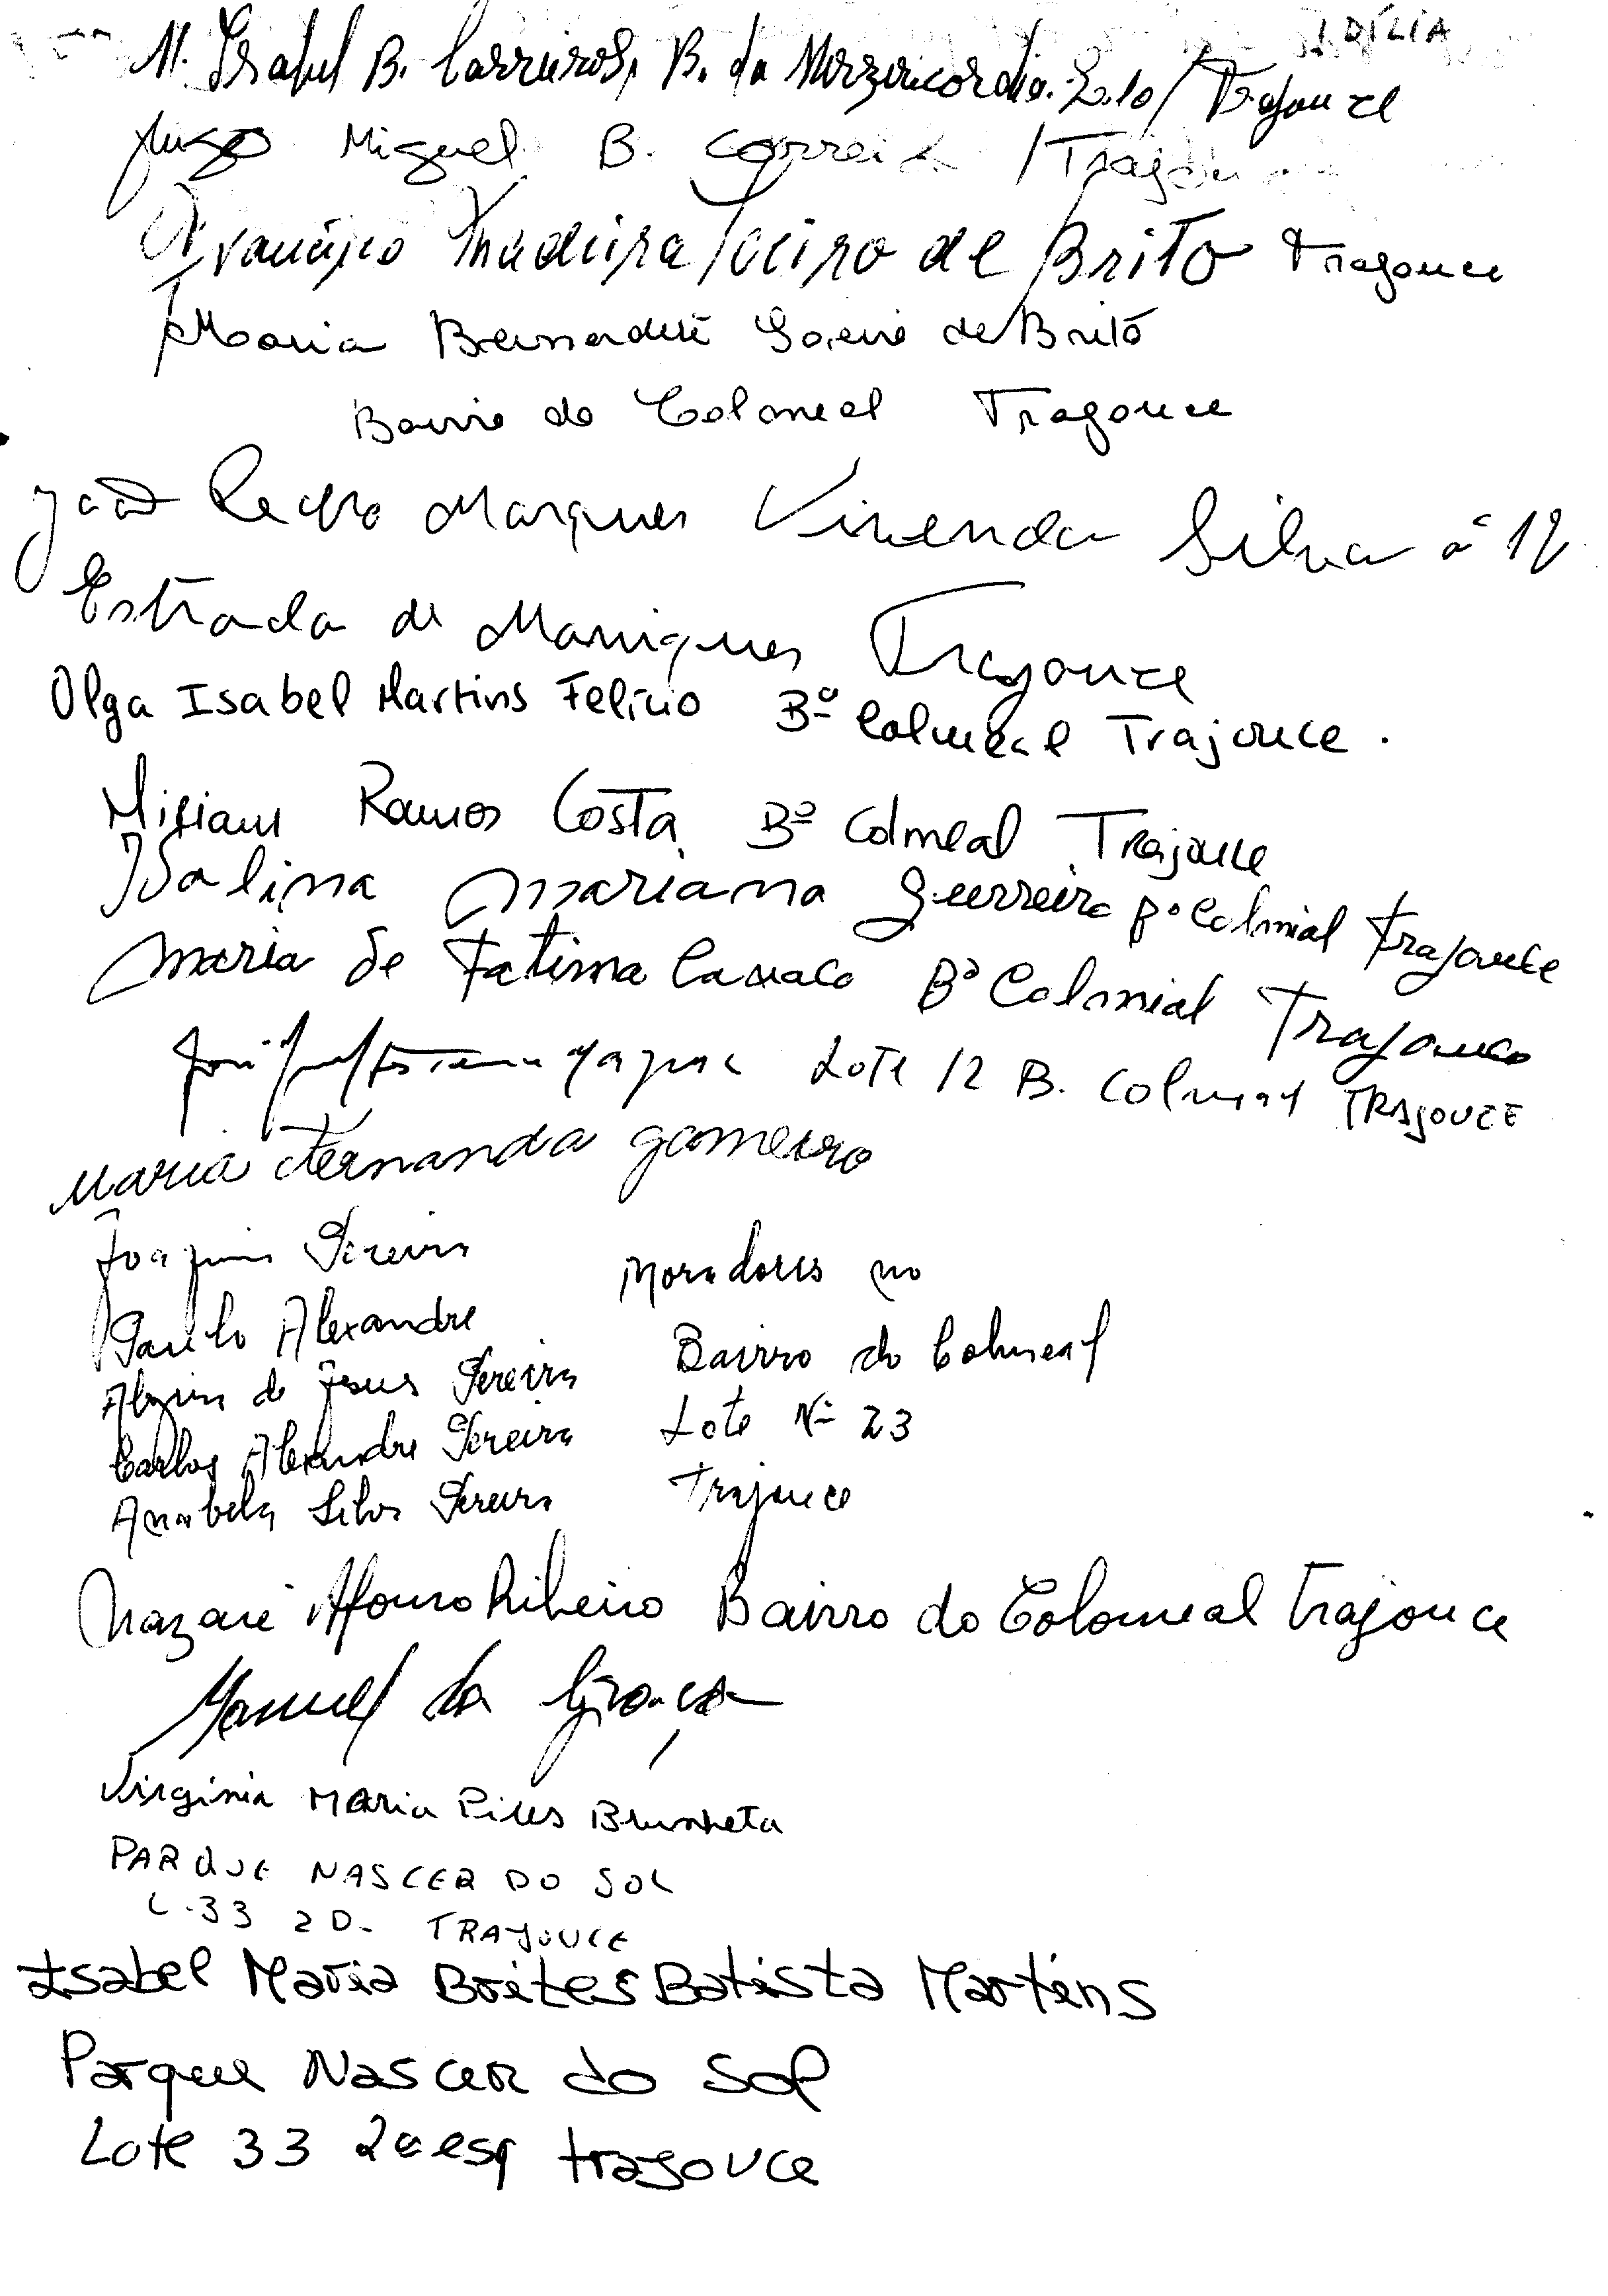 IDÍLIA
M. Isabel B. Carreiros, B. da Mizericordia. L.10/ Trajouce
Hugo Miguel B. Correia /Trajou
Francisco Madeira Loeiro de Brito Tragouce
Maria Bernardete Loeiro de Brito
Bairro do Colomeal Tragouce
João Pedro Marques Vivenda Silva nº 12
Estrada de Manique Trajouce
Olga Isabel Martins Felício Bº Colmeal Trajouce.
Miriam Ramos Costa Bº Colmeal Trajouce
Idalina Mariana Guerreiro Bº Colmial Trajouce
Maria de Fatima Bº Colmial Trajouce
José Lote 12 B. Colmeal TRAJOUCE
Maria Fernanda gameiro
Joaquim Pereira Moradores no
Paulo Alexandre Bairro do Colmeal
de Jesus Pereira Lote Nº 23
Carlos Alexandre Pereira Trajouce
Anabela Silva Pereira
Nazaré Afonso Ribeiro Bairro do Colomeal Trajouce
Manuel da Graça
Virginia Maria Pires Brunheta
PARQUE NASCER DO SOL
L.33 2D- TRAJOUCE
Isabel Maria Brites Batista Martins
Parque Nascer do Sol
Lote 33 2º esq trajouce